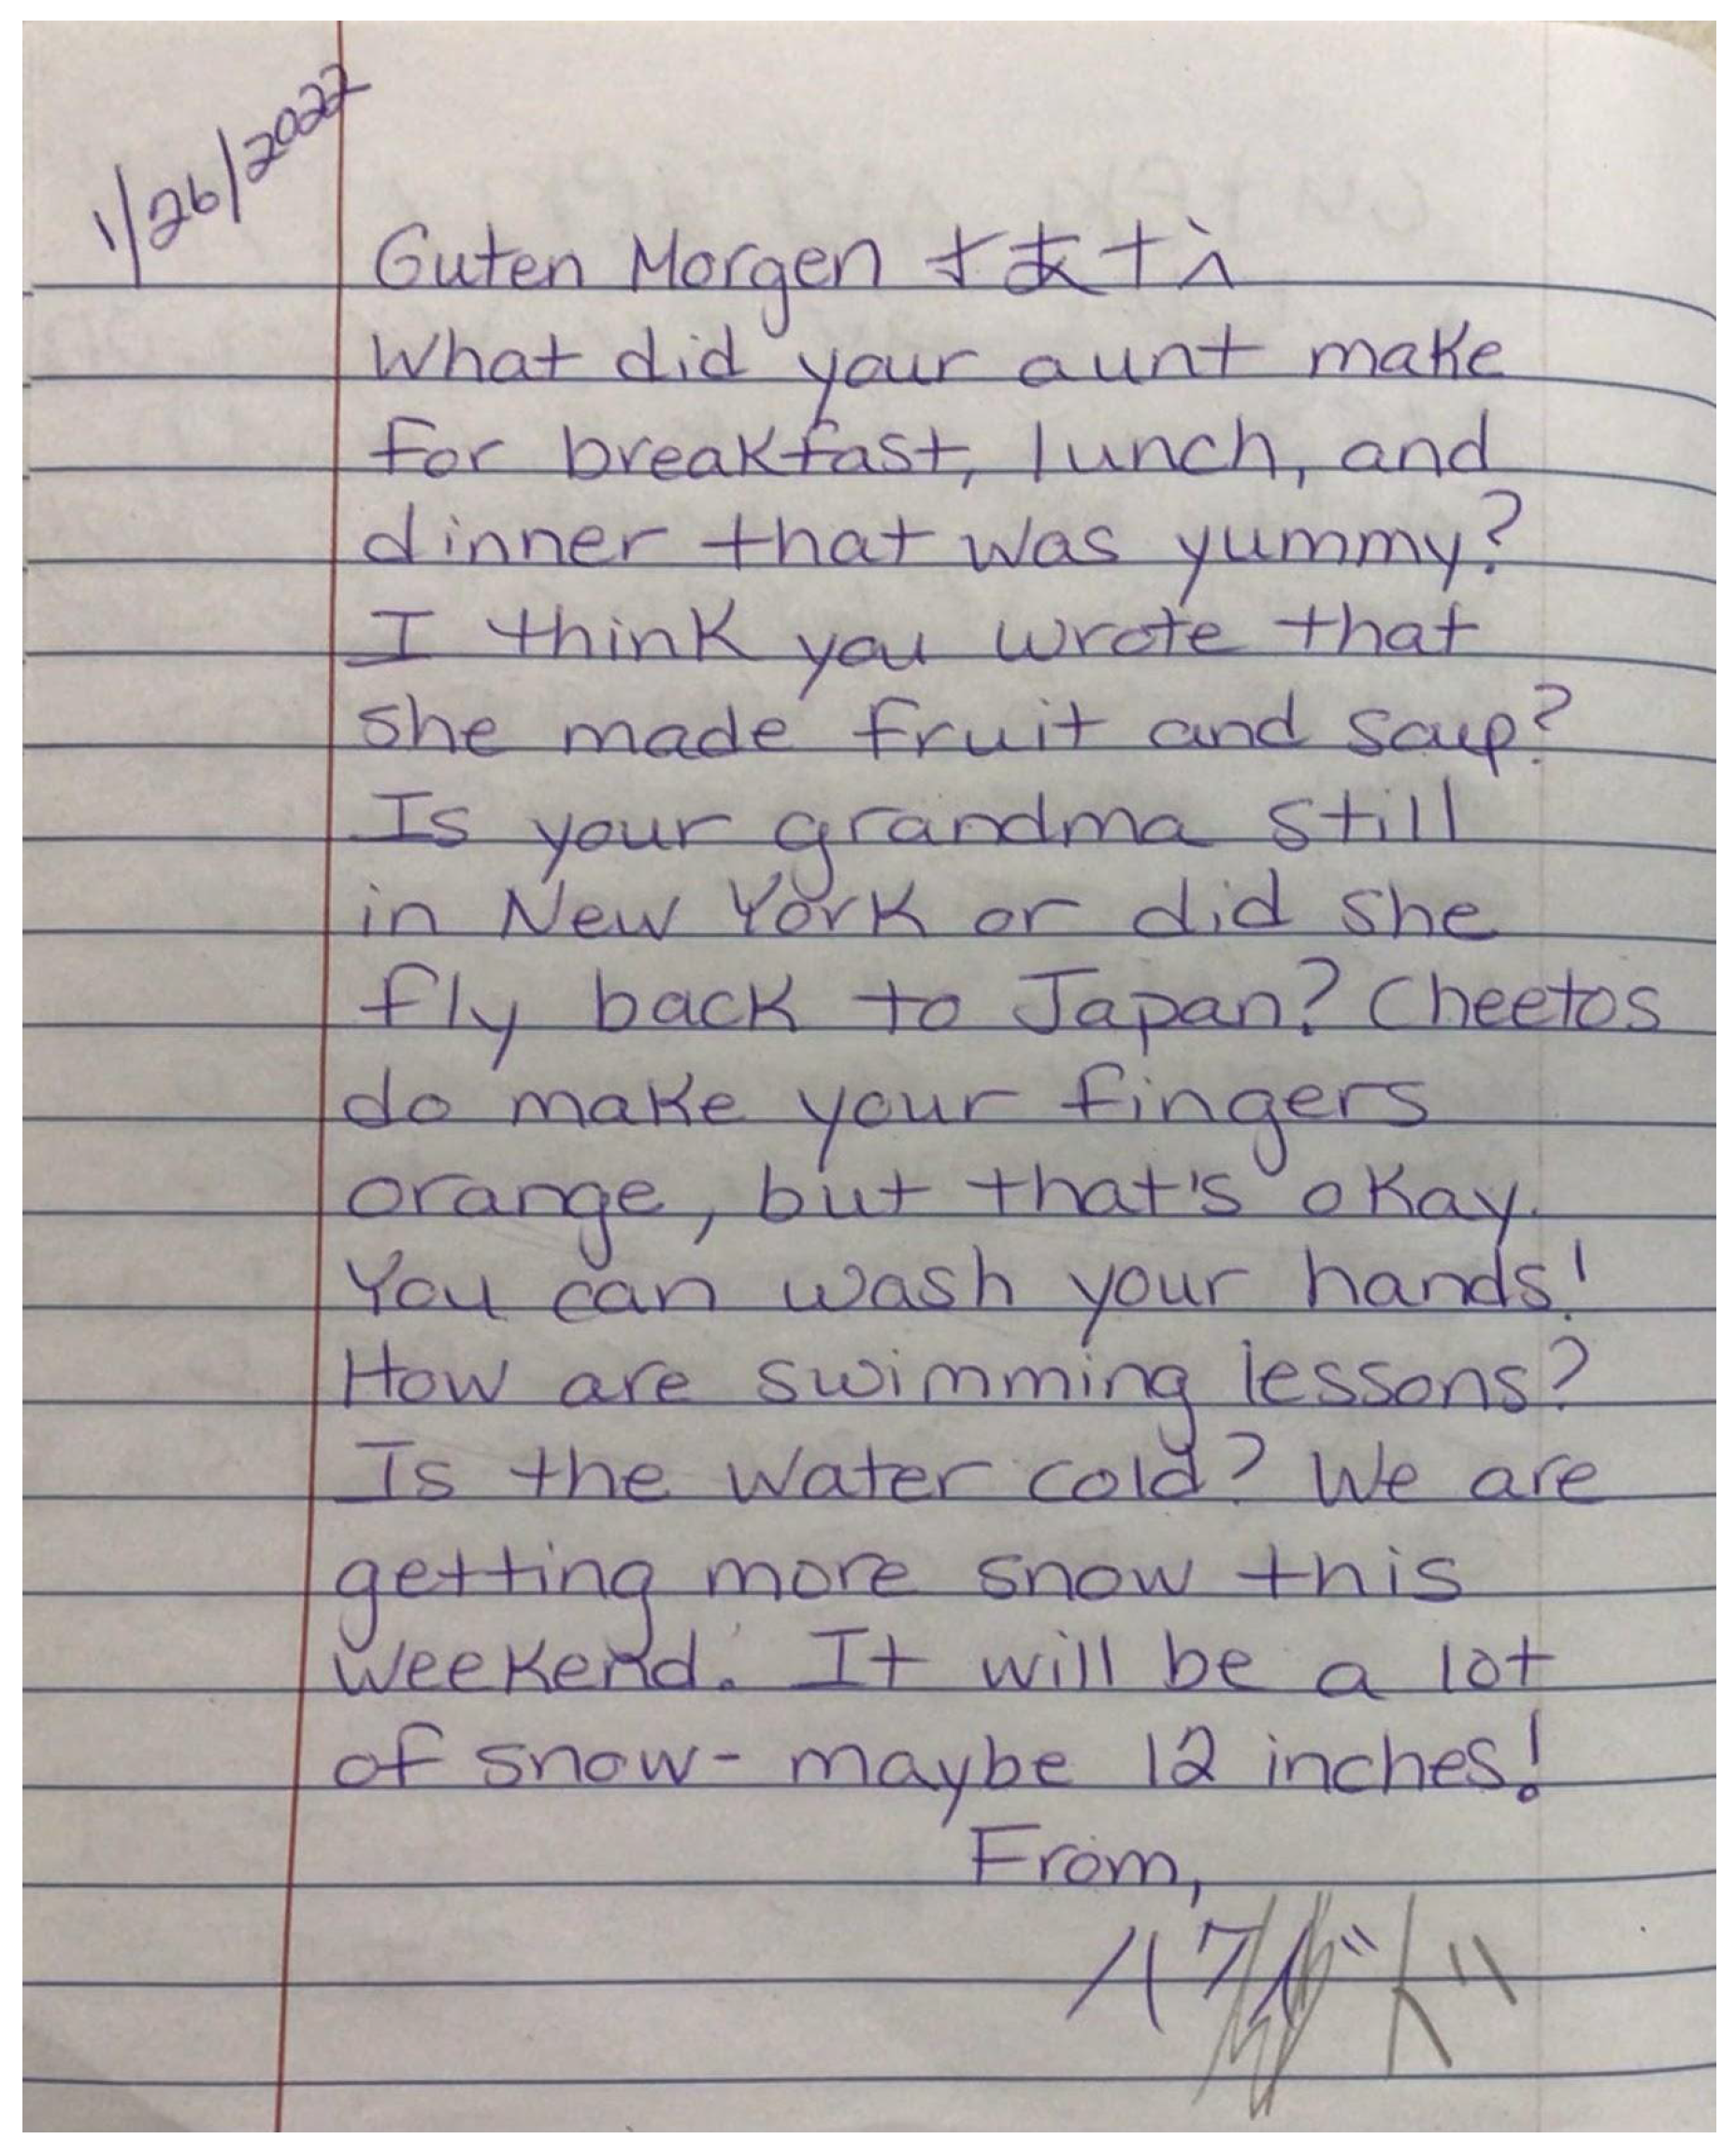 1/26/2022
Guten Morgen
What did your aunt make
for breakfast, lunch, and
dinner that was yummy?
I think you wrote that
she made fruit and soup?
Is your grandma still
in New York or did she
fly back to Japan? Cheetos
do make your fingers
orange, but that's okay.
You can wash your hands!
How are swimming lessons?
Is the water cold? We are
getting more snow this
weekend. It will be a lot
of snow- maybe 12 inches!
From,
ハフ ド